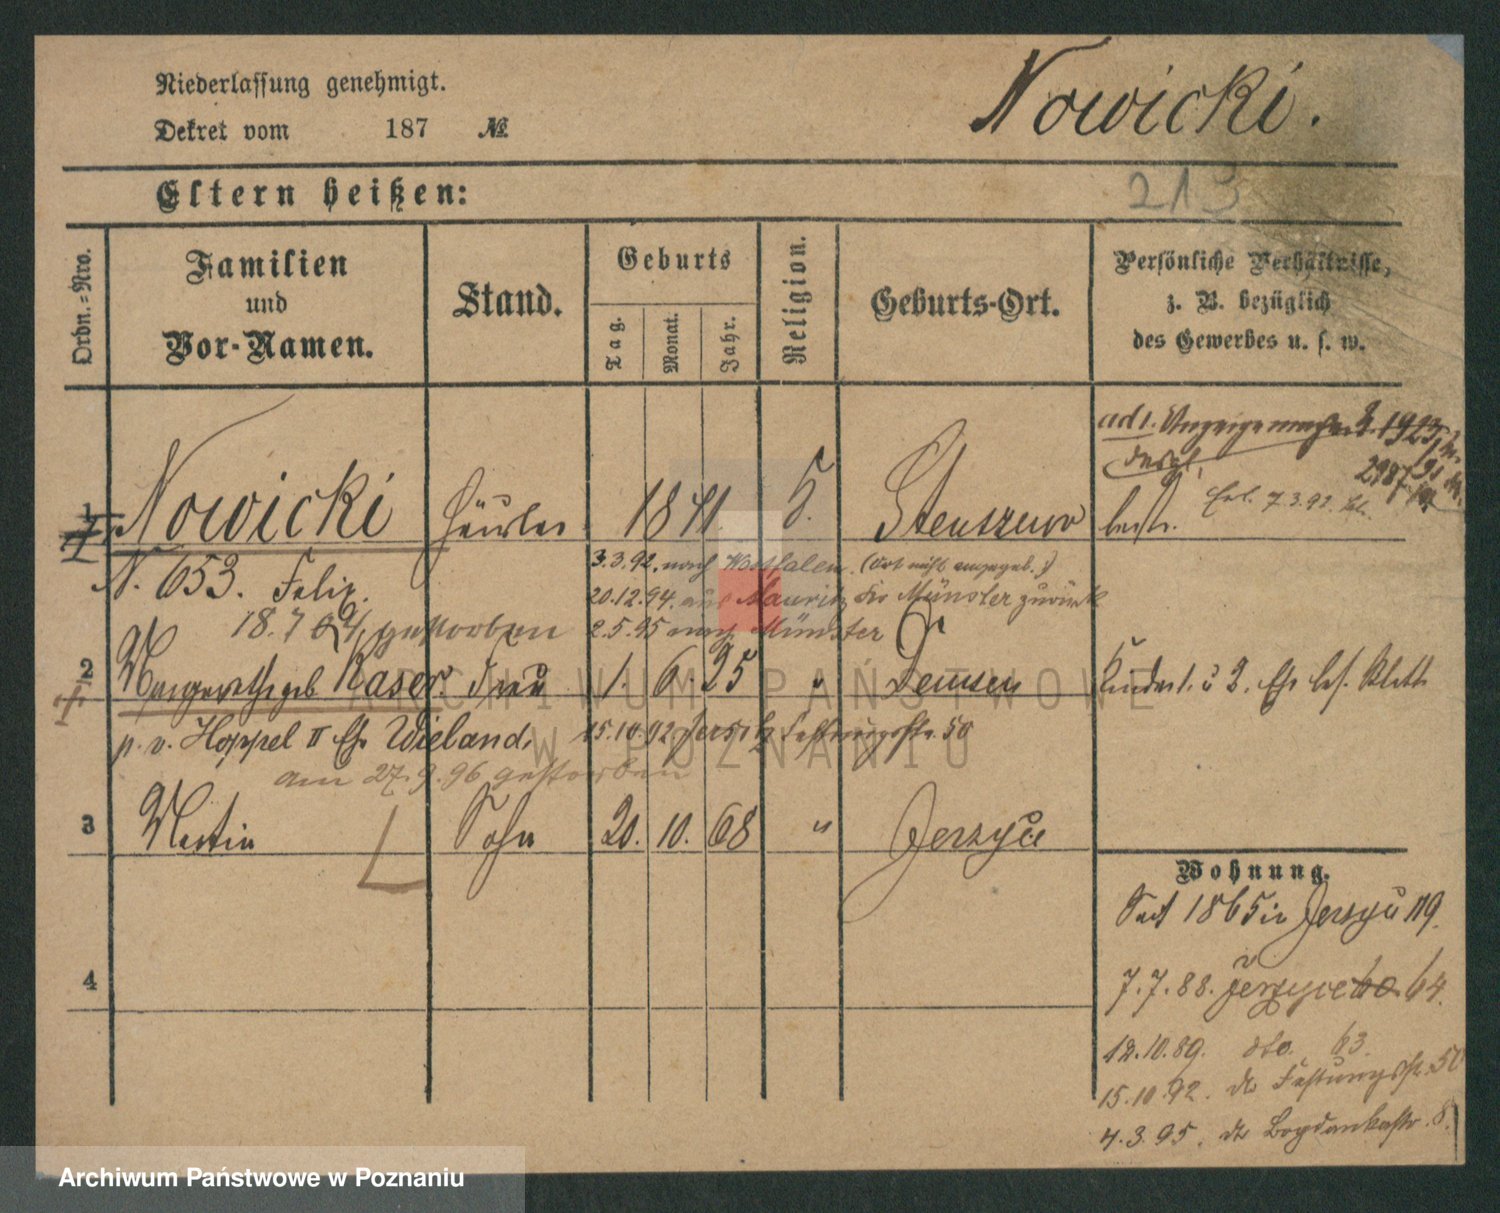 Niederlassung genehmigt.
Nowicki.
Dekret vom 187 №
213
Eltern heißen:
Ordn.=Nro.
Familien
und
Vor-Namen.
Stand.
Geburts
Tag.
Monat.
Jahr.
Religion.
Geburts-Ort.
Persönliche Verhältnisse,
z. B. bezüglich
des Gewerbes u. s. w.
ad 1.
2987
1 Nowicki Häusler 1841 Stenszewo
7.3.92.
N. 653. Felix
3.3.92. nach Westfalen. (Ort nicht angegeb.)
20.12.94. aus Mauritz Münster zurück
18.7 gestorben
2.5.95 nach Münster
2 geb. Kaser. Frau 1. 6. 25 " Demsen
p. v. Hoppel II Wieland.
15.10.92 Jersitz Festungsstr. 50
am 27.9.96 gestorben
3 Martin Sohn 20. 10. 68 " Jerzyce
4
Wohnung.
Seit 1865 in Jerzyce 119.
7.7.88. Jerzyce 64.
12.10.89. dto. 63.
15.10.92. do Festungsstr. 50
4.3.95. do Bogdankastr. 8.
ARCHIWUM PAŃSTWOWE
W POZNANIU
Archiwum Państwowe w Poznaniu